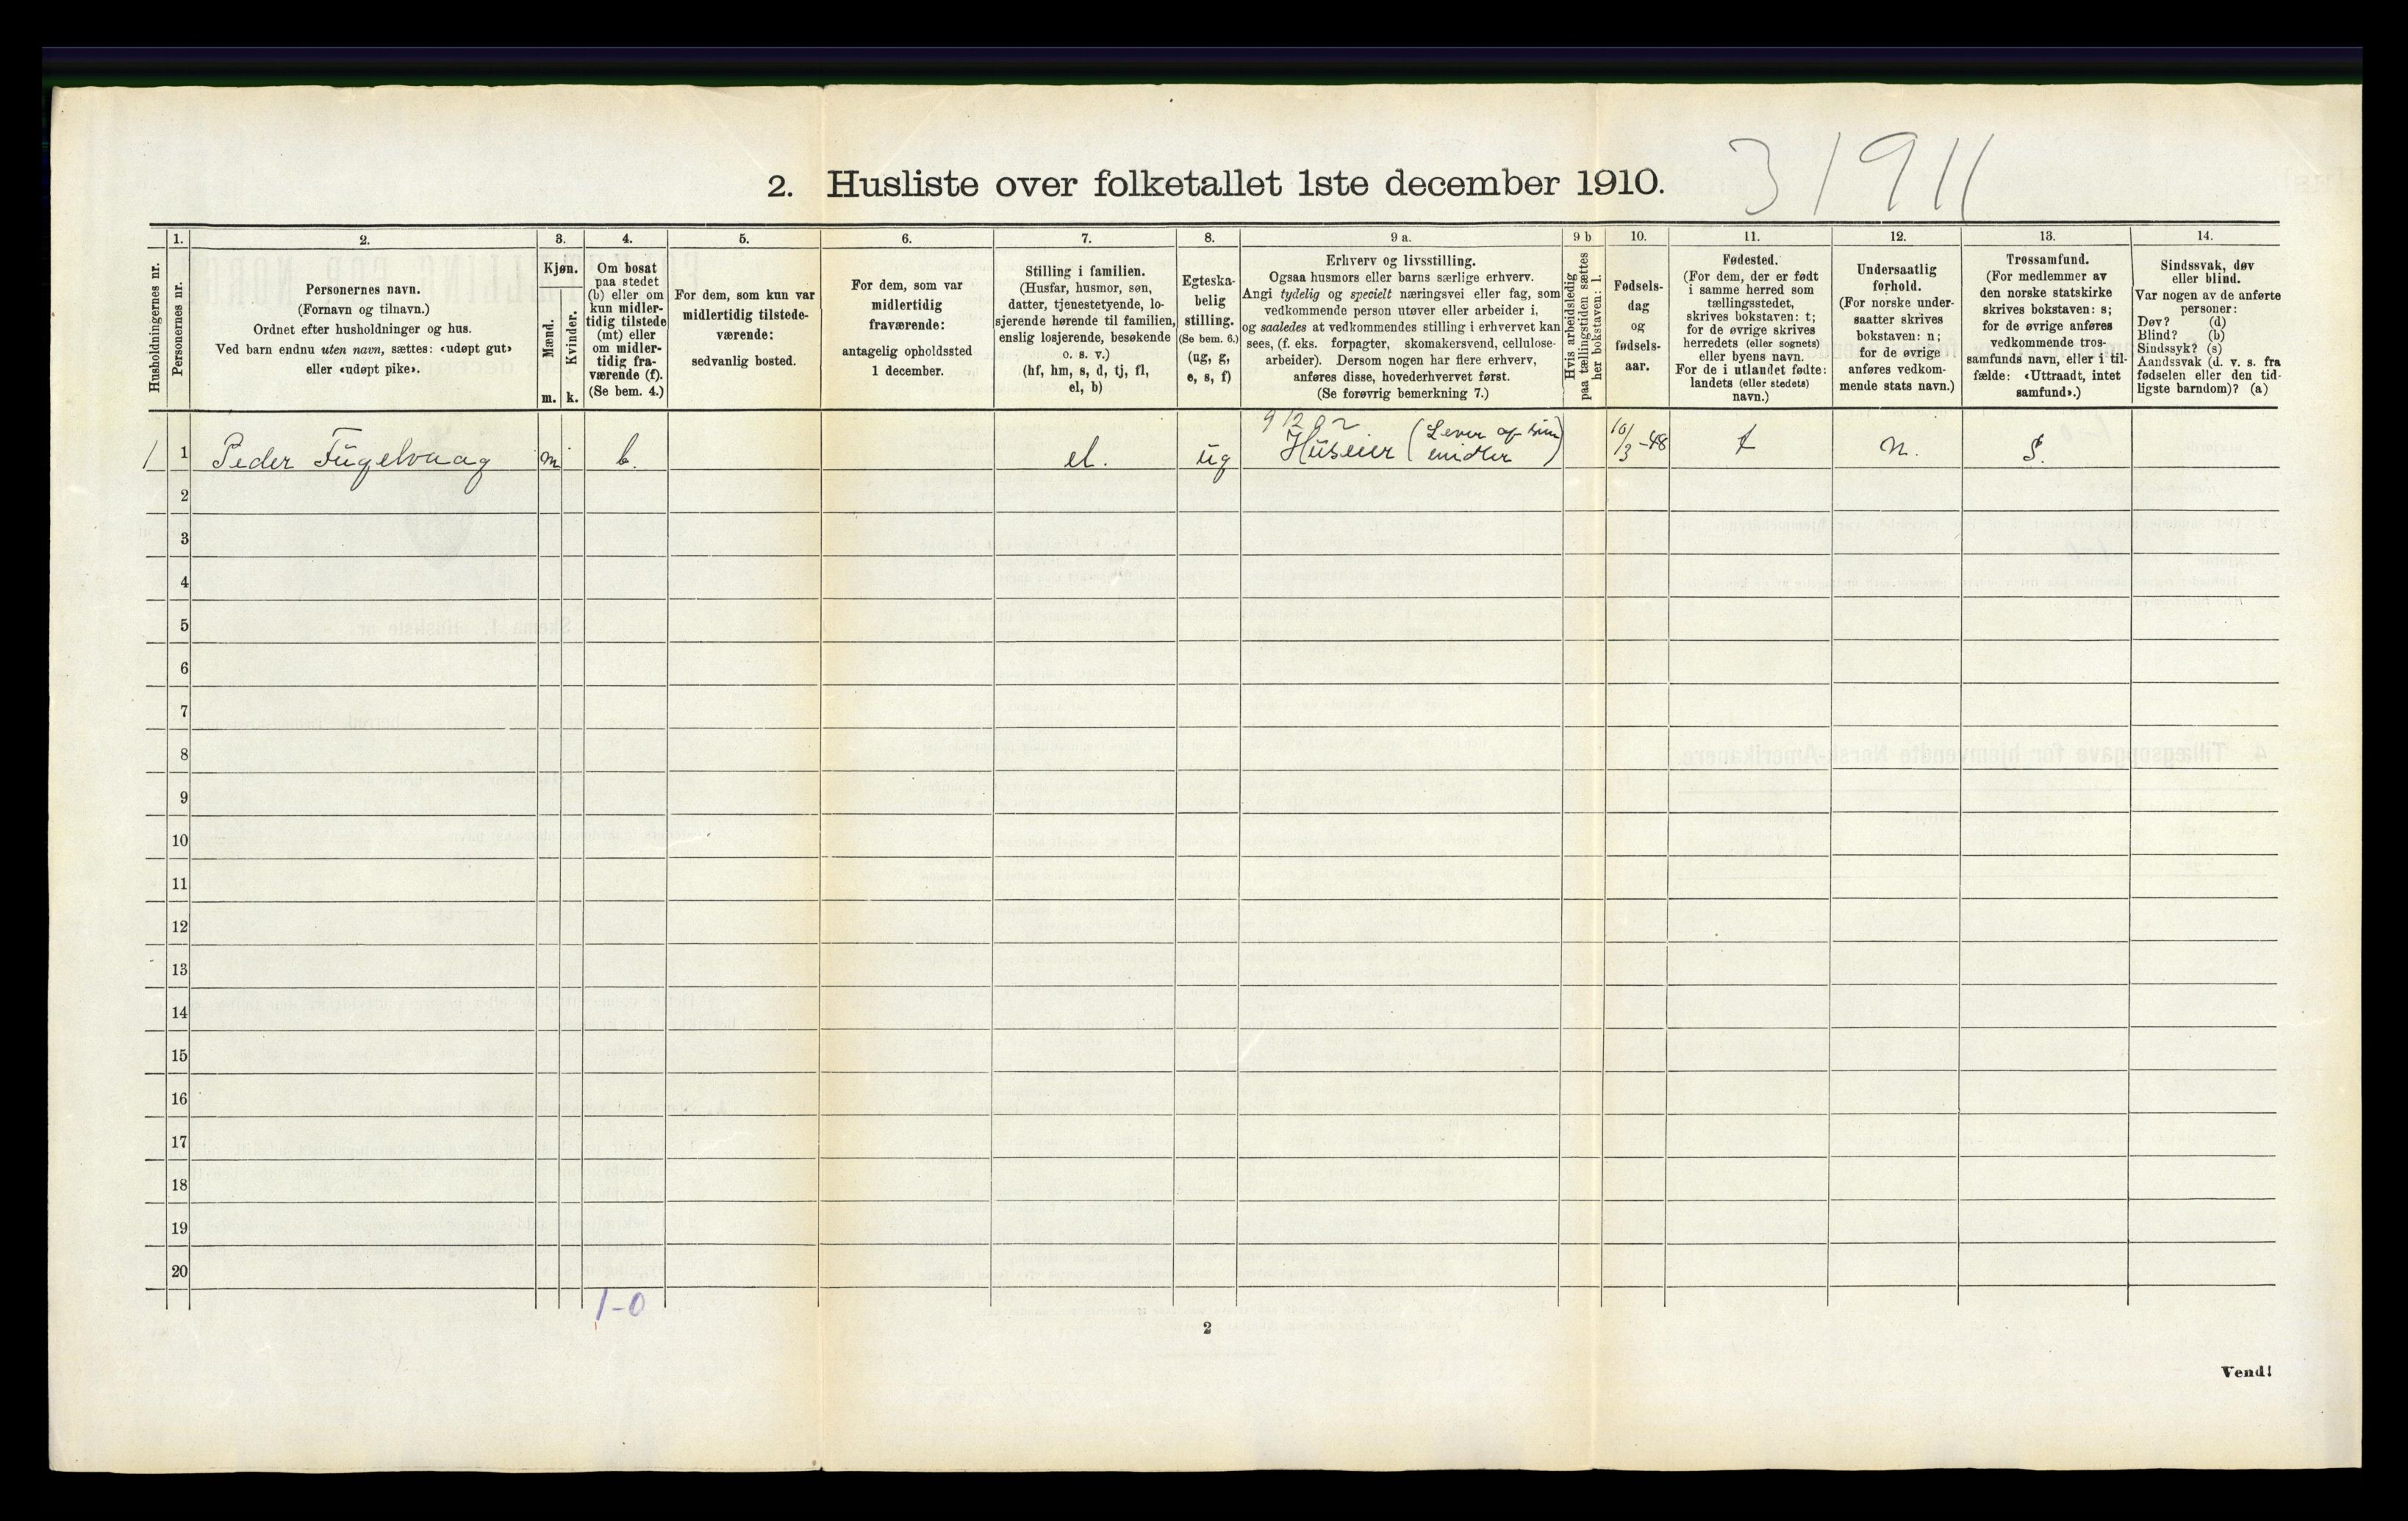 2. Husliste over folketallet 1ste december 1910.
31911
Husholdningernes nr.
1.
Personernes nr.
2.
Personernes navn.
(Fornavn og tilnavn.)
Ordnet efter husholdninger og hus.
Ved barn endnu uten navn, sættes: «udøpt gut»
eller «udøpt pike».
3.
Kjøn.
Mænd.
Kvinder.
m. k.
4.
Om bosat
paa stedet
(b) eller om
kun midler-
tidig tilstede
(mt) eller
om midler-
tidig fra-
værende (f).
(Se bem. 4.)
5.
For dem, som kun var
midlertidig tilstede-
værende:
sedvanlig bosted.
6.
For dem, som var
midlertidig
fraværende:
antagelig opholdssted
1 december.
7.
Stilling i familien.
(Husfar, husmor, søn,
datter, tjenestetyende, lo-
sjerende hørende til familien,
enslig losjerende, besøkende
o. s. v.)
(hf, hm, s, d, tj, fl,
el, b)
8.
Egteska-
belig
stilling.
(Se bem. 6.)
(ug, g,
e, s, f)
9 a.
Erhverv og livsstilling.
Ogsaa husmors eller barns særlige erhverv.
Angi tydelig og specielt næringsvei eller fag, som
vedkommende person utøver eller arbeider i,
og saaledes at vedkommendes stilling i erhvervet kan
sees, (f. eks. forpagter, skomakersvend, cellulose-
arbeider). Dersom nogen har flere erhverv,
anføres disse, hovederhvervet først.
(Se forøvrig bemerkning 7.)
9 b
Hvis arbeidsledig
paa tællingstiden sættes
her bokstaven: l.
10.
Fødsels-
dag
og
fødsels-
aar.
11.
Fødested.
(For dem, der er født
i samme herred som
tællingsstedet,
skrives bokstaven: t;
for de øvrige skrives
herredets (eller sognets)
eller byens navn.
For de i utlandet fødte:
landets (eller stedets)
navn.)
12.
Undersaatlig
forhold.
(For norske under-
saatter skrives
bokstaven: n;
for de øvrige
anføres vedkom-
mende stats navn.)
13.
Trossamfund.
(For medlemmer av
den norske statskirke
skrives bokstaven: s;
for de øvrige anføres
vedkommende tros-
samfunds navn, eller i til-
fælde: «Uttraadt, intet
samfund».)
14.
Sindssvak, døv
eller blind.
Var nogen av de anførte
personer:
Døv? (d)
Blind? (b)
Sindssyk? (s)
Aandssvak (d. v. s. fra
fødselen eller den tid-
ligste barndom)? (a)
1 1 Peder Fugelvaag m b. el. ug Huseier (Lever af sine midler) 10/3-48 t n. s.
2
3
4
5
6
7
8
9
10
11
12
13
14
15
16
17
18
19
20
1-0
2
Vend!